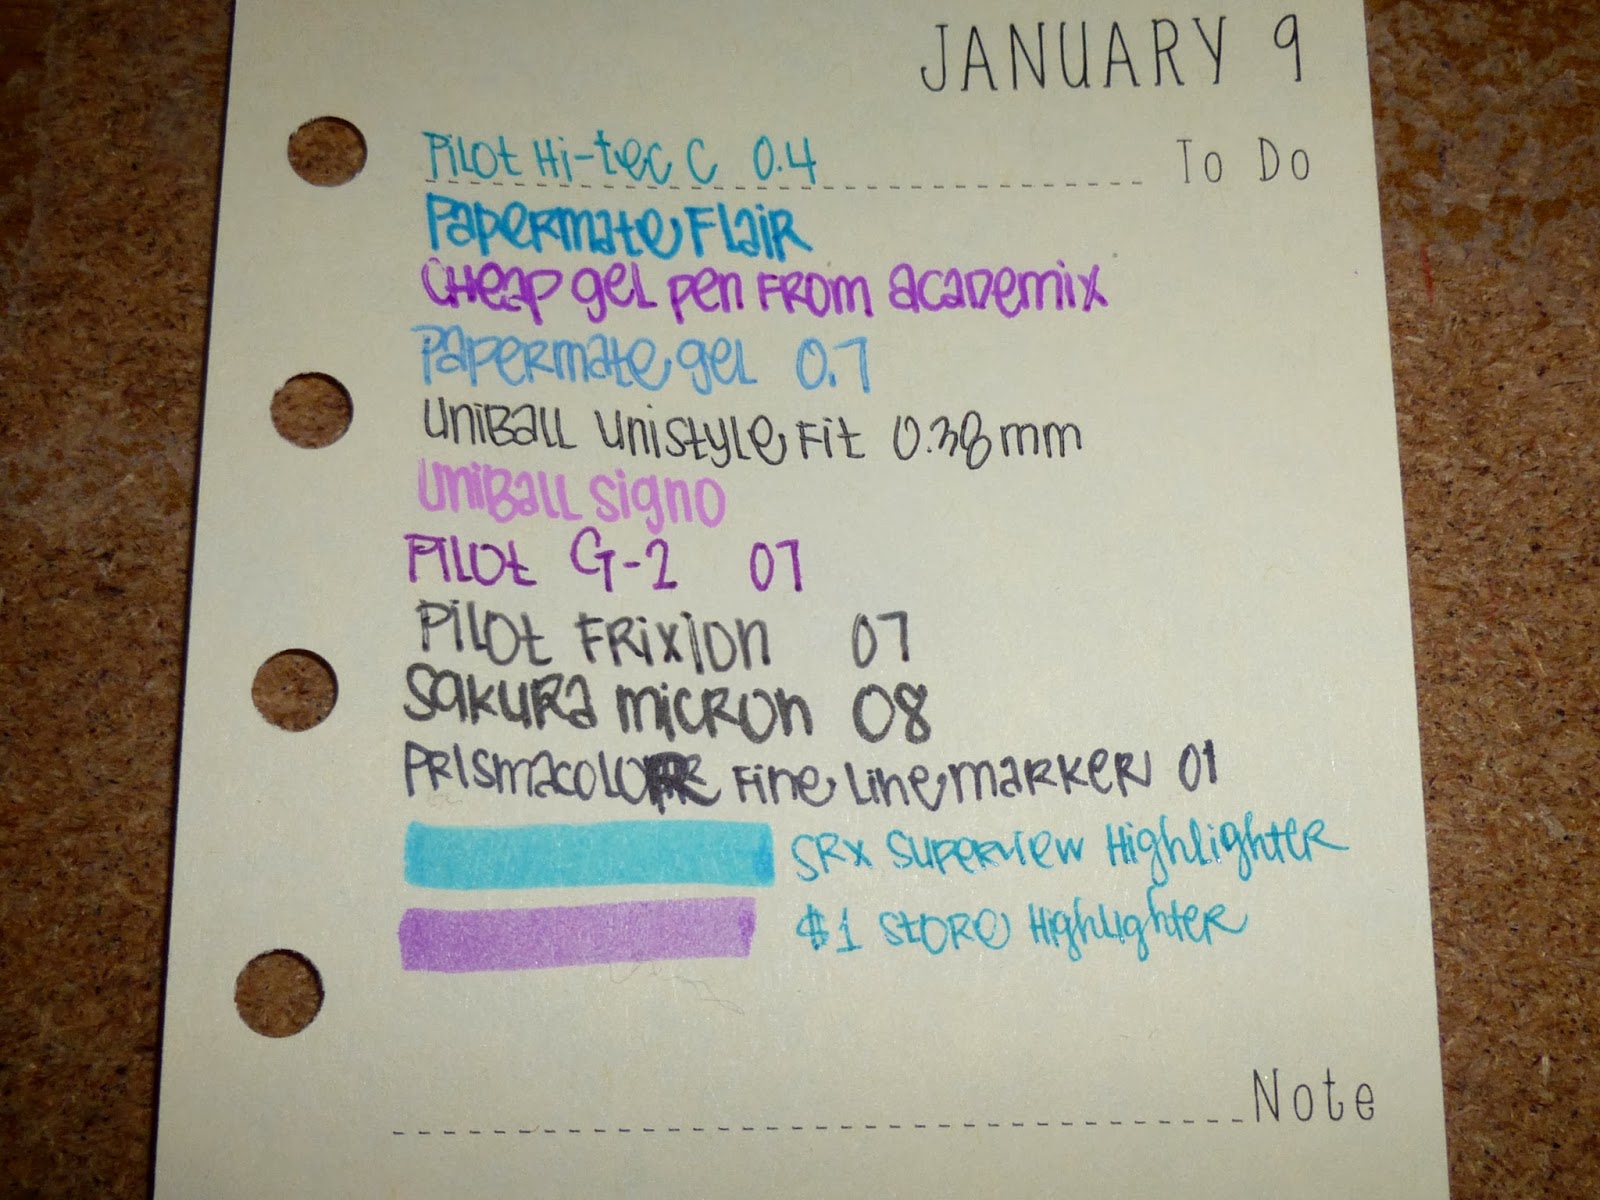 JANUARY 9
Pilot Hi-tec C 0.4
To Do
Papermate Flair
Cheap gel pen from academix
Papermate gel 0.7
Uniball Unistyle Fit 0.38mm
Uniball Signo
Pilot G-2 07
Pilot Frixion 07
Sakura micron 08
Prismacolor Fine Line marker 01
SRX Superview Highlighter
$1 Store Highlighter
Note